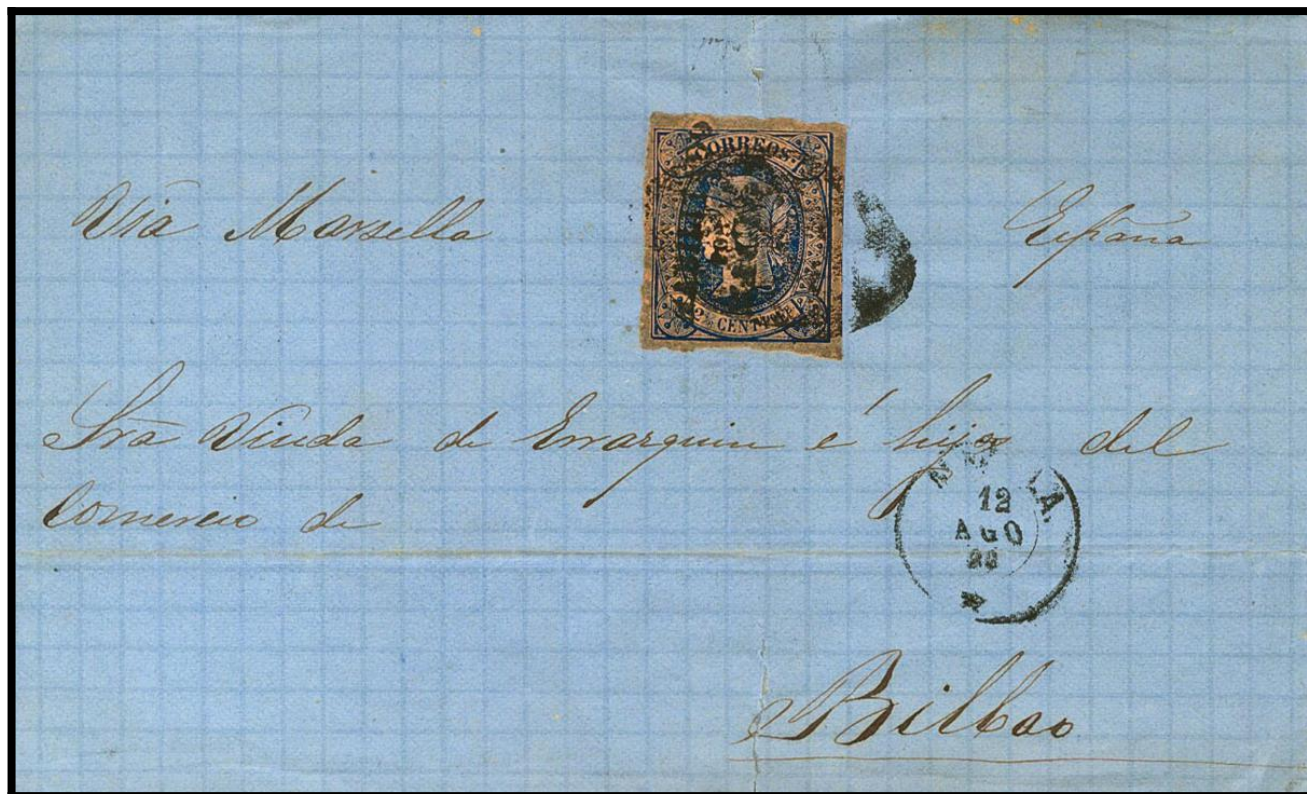 CORREOS
Via Marsella
España
CENT
Sra Viuda de Errarquin é hijos del
Comercio de
12
AGO
Bilbao